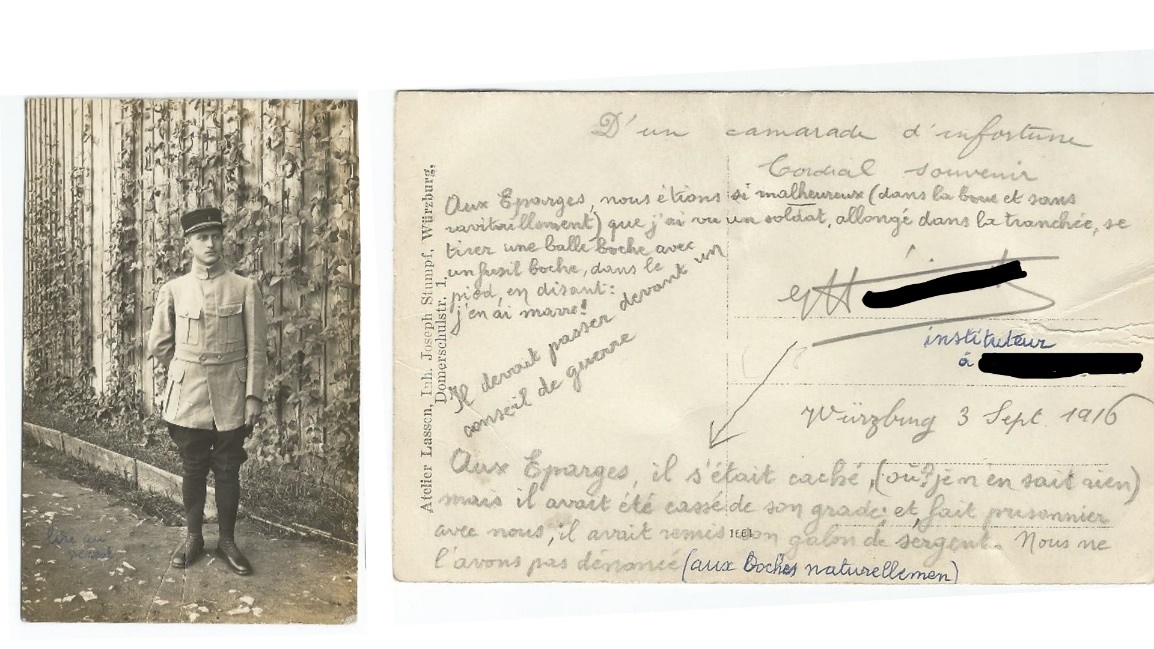 lire au
verso
Atelier Lassen, Inh. Joseph Stumpf, Würzburg,
Domerschulstr. 1.
D'un camarade d'infortune
Cordial souvenir
Aux Eparges, nous étions si malheureux (dans la boue et sans
ravitaillement) que j'ai vu un soldat, allongé dans la tranchée, se
tirer une balle boche avec
un fusil boche, dans le
pied, en disant:
j'en ai marre!
Il devait passer devant un
conseil de guerre
instituteur
à
Würzburg 3 Sept. 1916
Aux Eparges, il s'était caché, (où? je n'en sait rien)
mais il avait été cassé de son grade et, fait prisonnier
avec nous, il avait remis son galon de sergent. Nous ne
l'avons pas dénoncé (aux boches naturellemen)